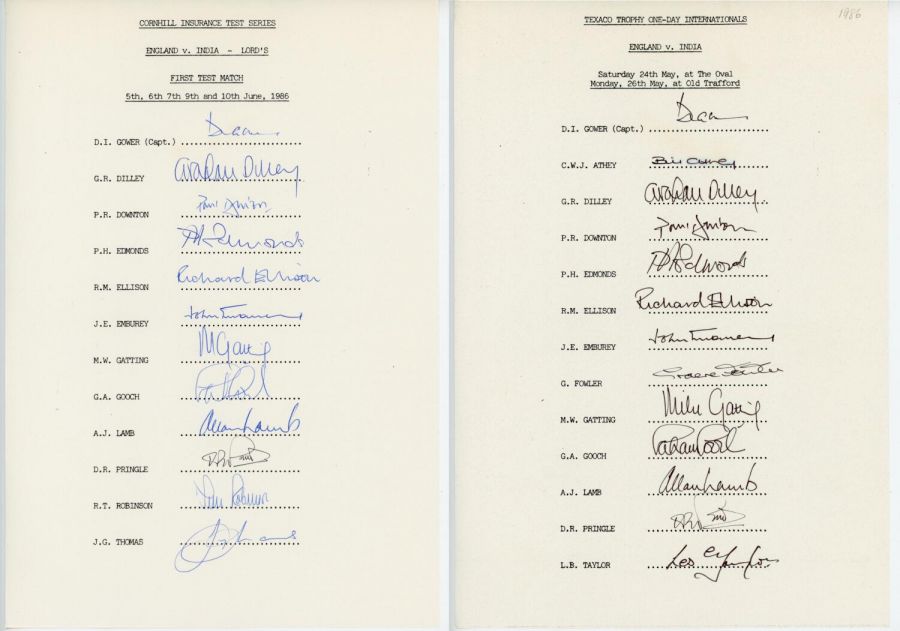 CORNHILL INSURANCE TEST SERIES
ENGLAND v. INDIA - LORD'S
FIRST TEST MATCH
5th, 6th 7th 9th and 10th June, 1986
D.I. GOWER (Capt.) ....................
G.R. DILLEY .................... Graham Dilley
P.R. DOWNTON .................... Paul Downton
P.H. EDMONDS .................... PH Edmonds
R.M. ELLISON .................... Richard Ellison
J.E. EMBUREY .................... John Emburey
M.W. GATTING .................... M Gatting
G.A. GOOCH ....................
A.J. LAMB .................... Allan Lamb
D.R. PRINGLE ....................
R.T. ROBINSON .................... Tim Robinson
J.G. THOMAS ....................
TEXACO TROPHY ONE-DAY INTERNATIONALS
1986
ENGLAND v. INDIA
Saturday 24th May, at The Oval
Monday, 26th May, at Old Trafford
D.I. GOWER (Capt.) ....................
C.W.J. ATHEY .................... Bill Athey
G.R. DILLEY .................... Graham Dilley
P.R. DOWNTON .................... Paul Downton
P.H. EDMONDS .................... PH Edmonds
R.M. ELLISON .................... Richard Ellison
J.E. EMBUREY .................... John Emburey
G. FOWLER .................... Graeme Fowler
M.W. GATTING .................... Mike Gatting
G.A. GOOCH .................... Graham Gooch
A.J. LAMB .................... Allan Lamb
D.R. PRINGLE ....................
L.B. TAYLOR .................... Les Taylor